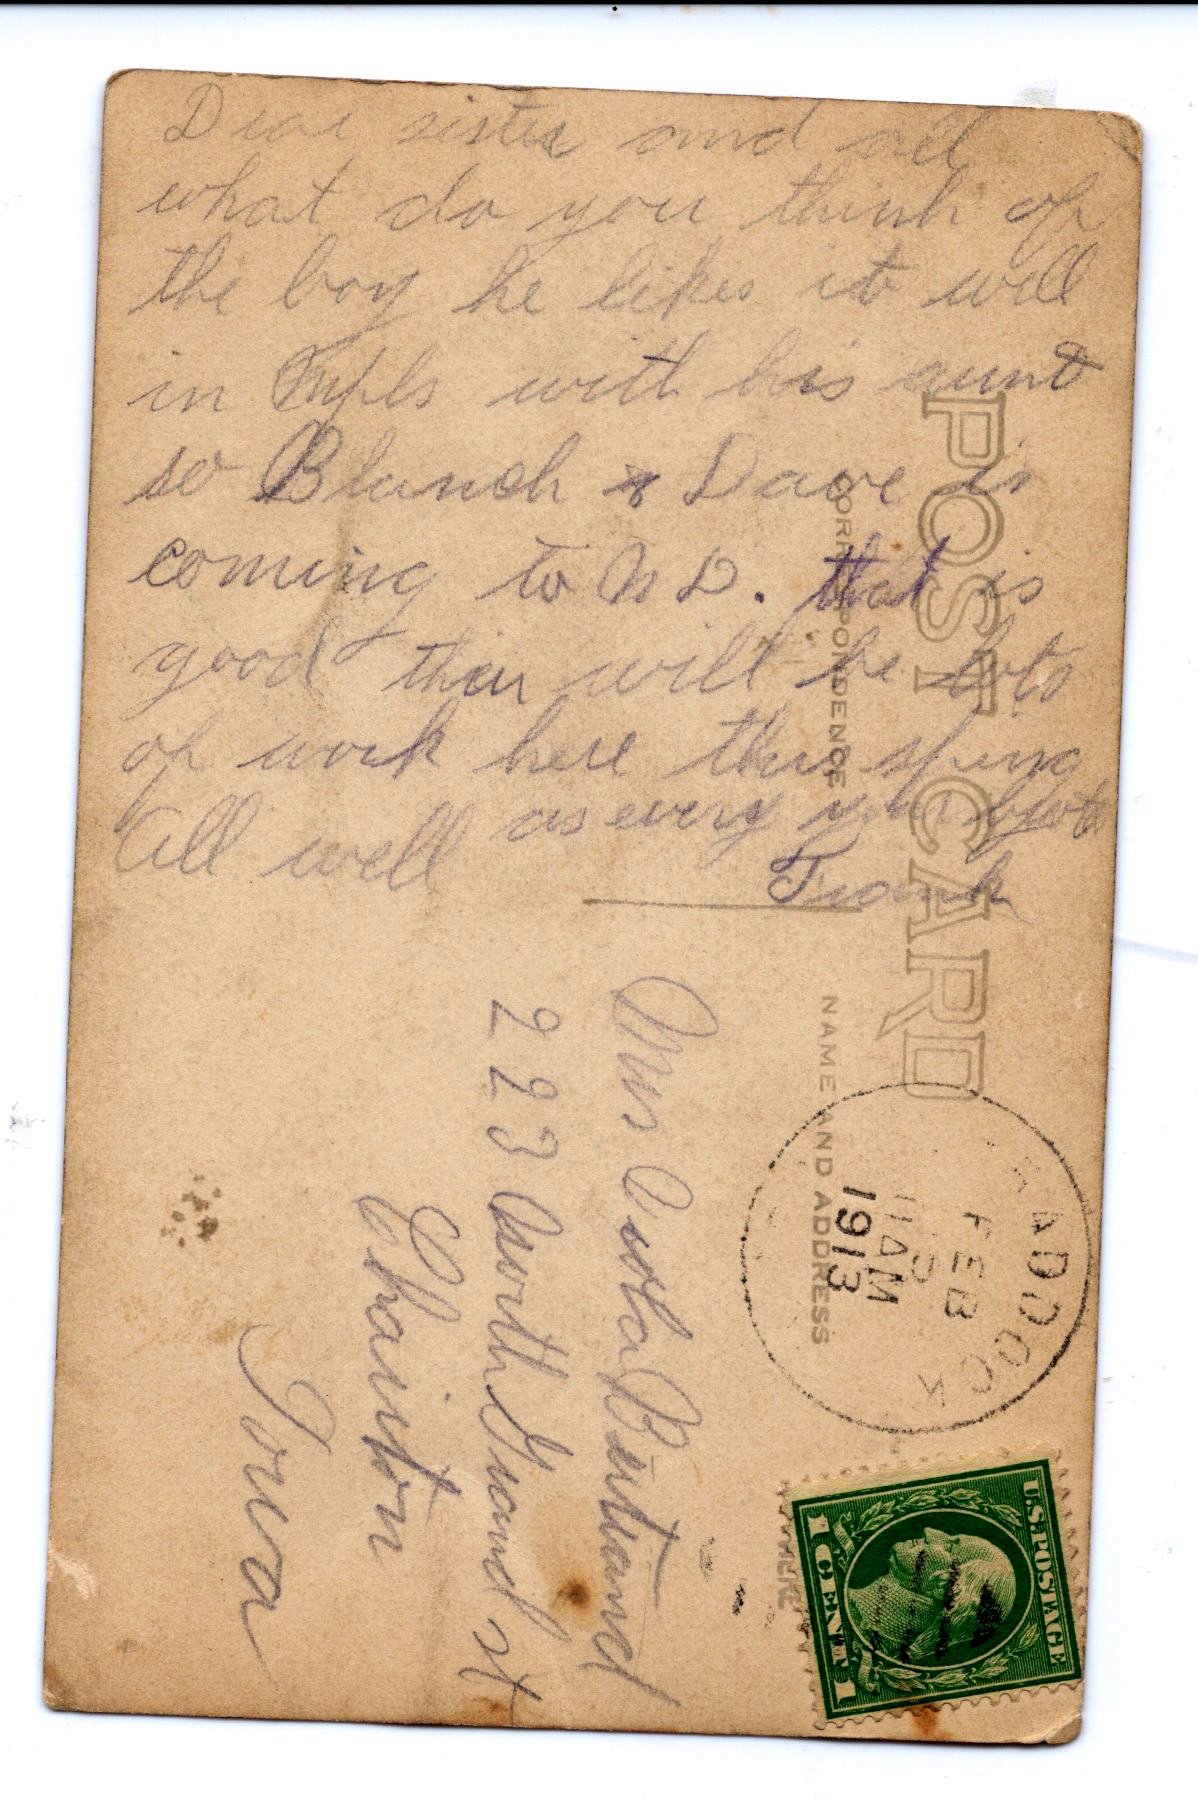 Dear sister and all
what do you think of
the boy he likes it well
in Mpls with his aunt
so Blanch & Dave is
coming to N D. that is
good thier will be lots
of work here this spring
as every year but
All well Frank
POST CARD
CORRESPONDENCE
NAME AND ADDRESS
ADDOCK
FEB
11AM
1913
U.S. POSTAGE
1 CENT 1
HERE
Mrs Bertrand
223 North Grand st
Chariton
Iowa